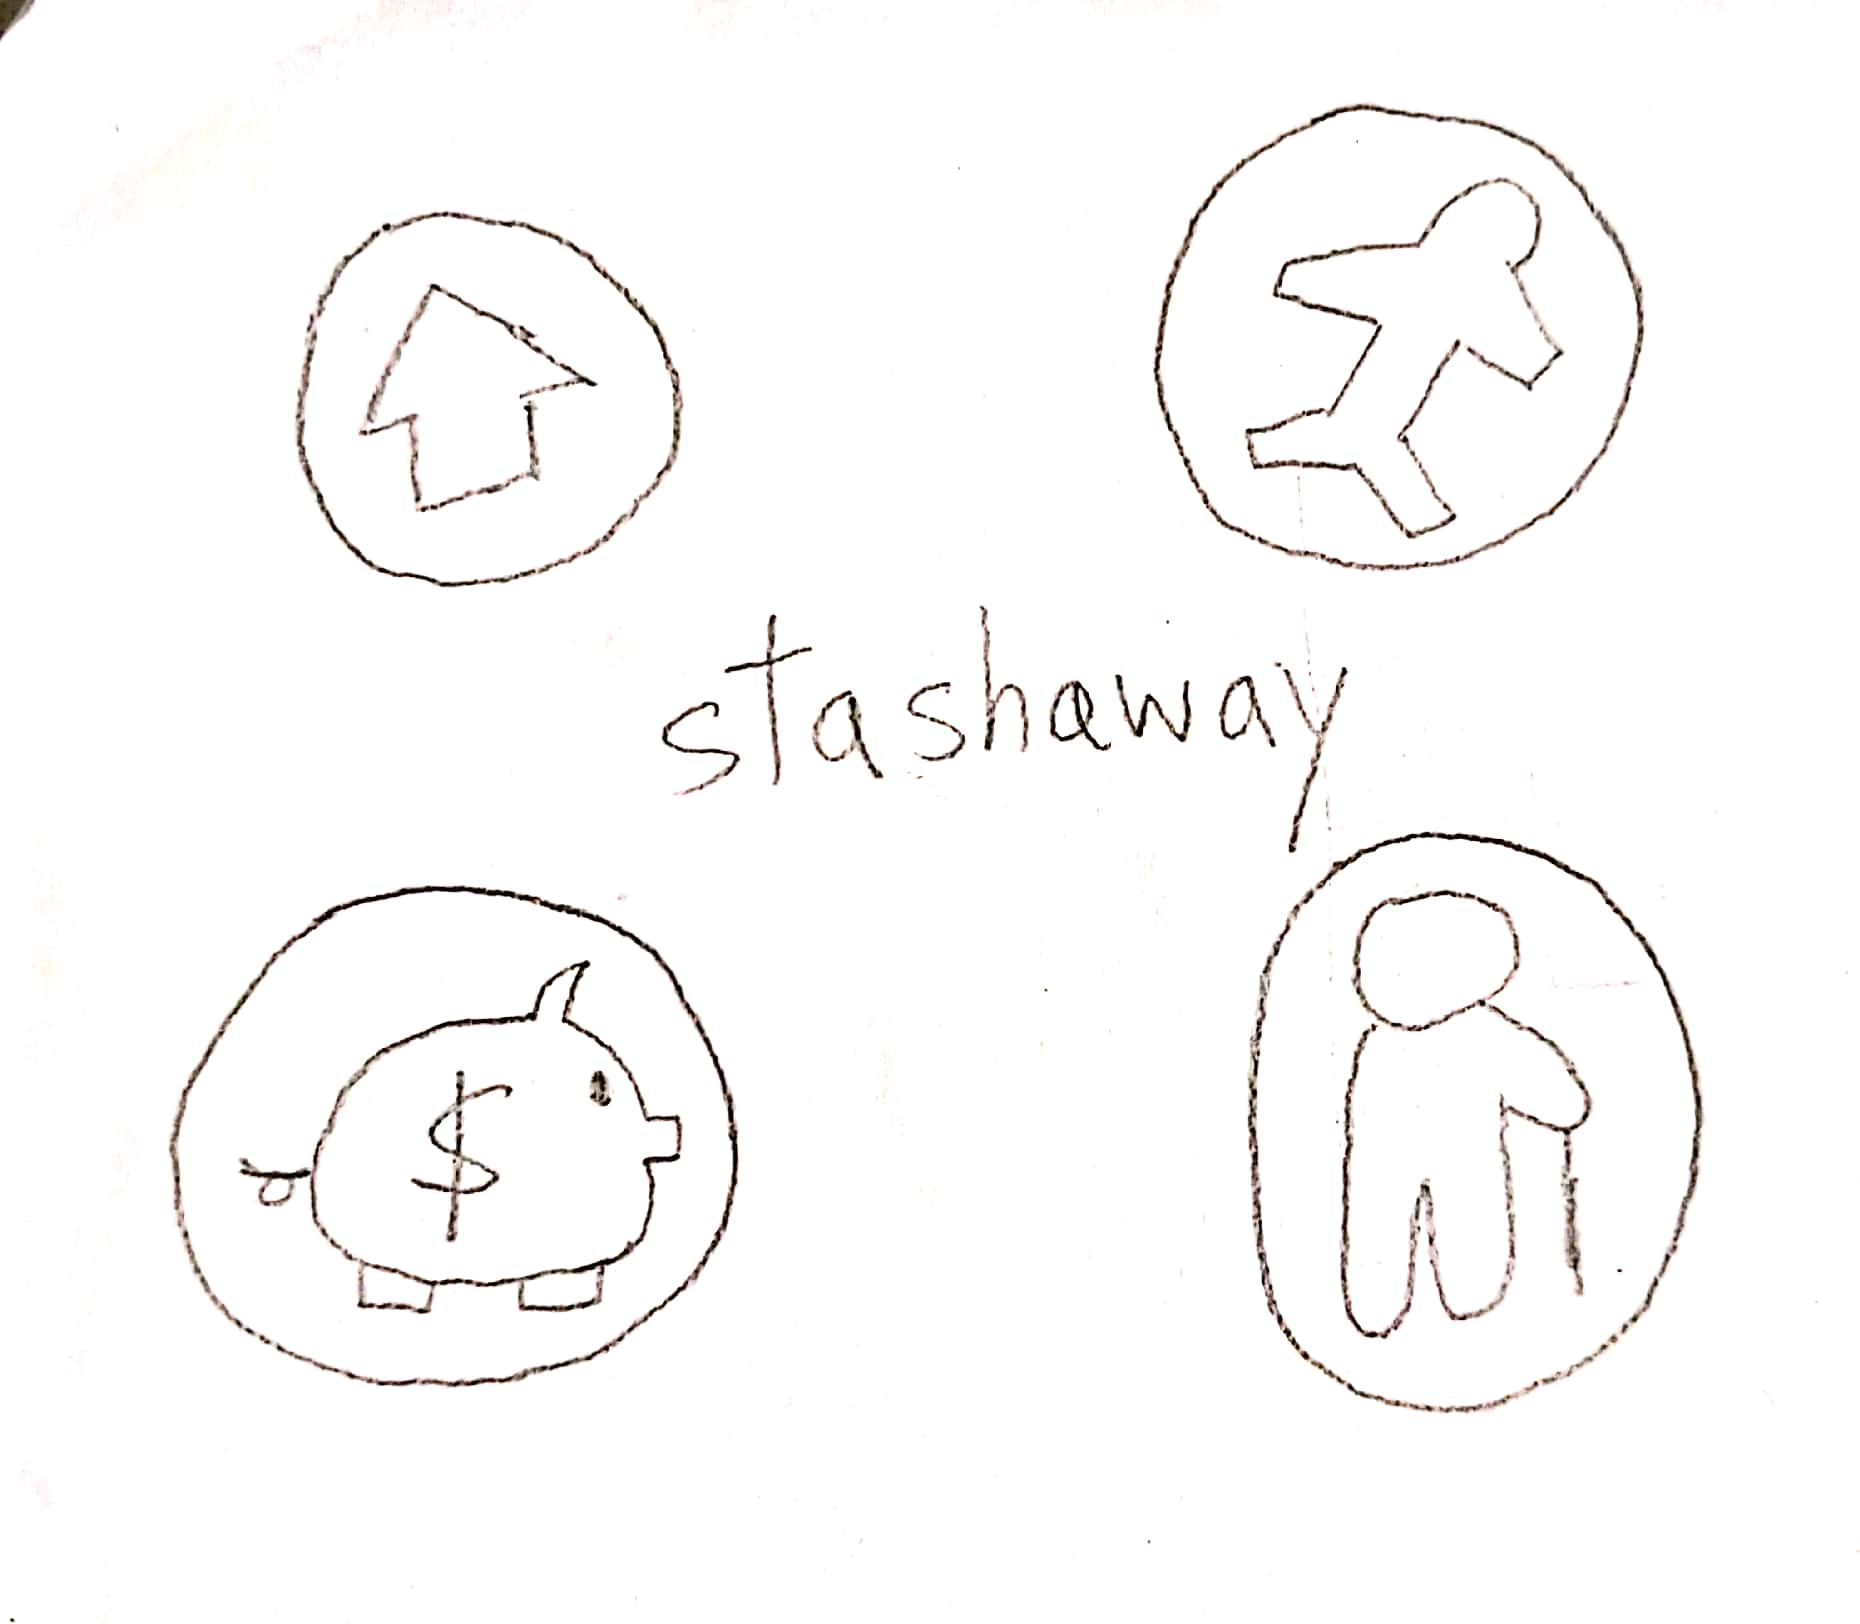 stashaway
$